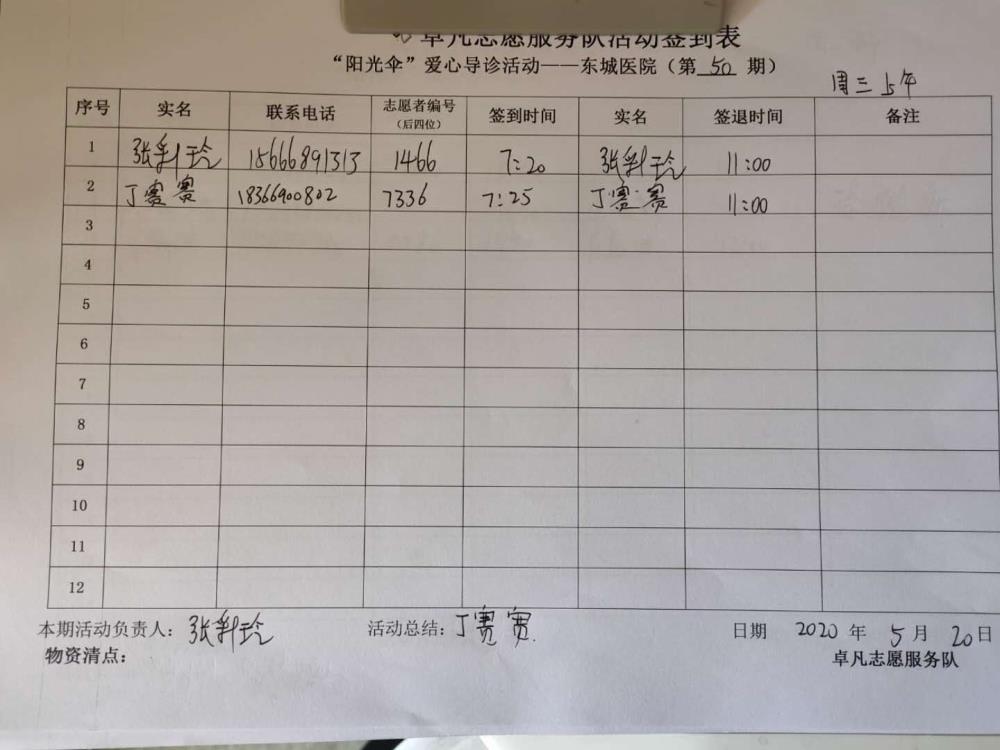 卓凡志愿服务队活动签到表
“阳光伞”爱心导诊活动——东城医院（第 50 期）
周三上午
序号 实名 联系电话 志愿者编号（后四位） 签到时间 实名 签退时间 备注
1 张利玲 15666891313 1466 7:20 张利玲 11:00
2 丁赛赛 18366900802 7336 7:25 丁赛赛 11:00
3
4
5
6
7
8
9
10
11
12
本期活动负责人：张利玲 活动总结：丁赛赛. 日期 2020 年 5 月 20 日
物资清点： 卓凡志愿服务队